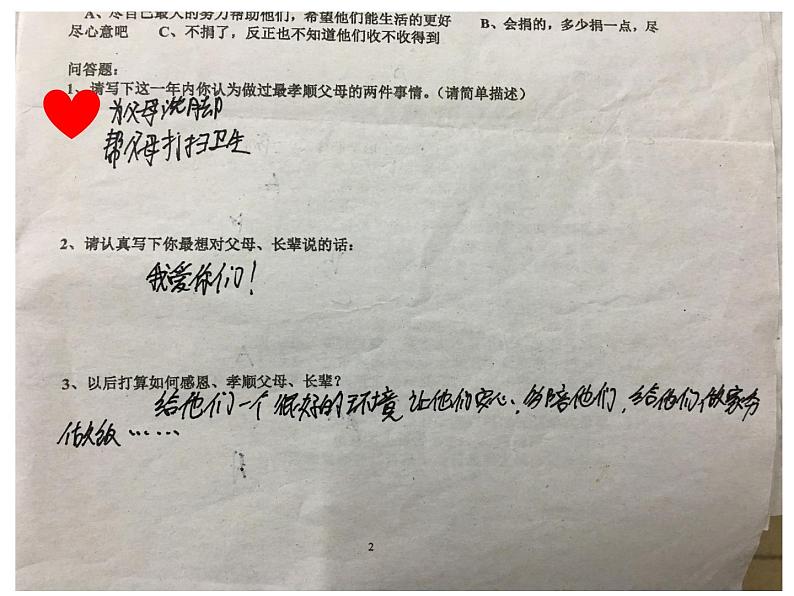 A、尽自己最大的努力帮助他们，希望他们能生活的更好 B、会捐的，多少捐一点，尽
尽心意吧 C、不捐了，反正也不知道他们收不收得到
问答题：
1、请写下这一年内你认为做过最孝顺父母的两件事情。（请简单描述）
为父母洗脚
帮父母打扫卫生
2、请认真写下你最想对父母、长辈说的话：
我爱你们！
3、以后打算如何感恩、孝顺父母、长辈？
给他们一个很好的环境，让他们安心，多陪他们，给他们做家务
做饭……
2